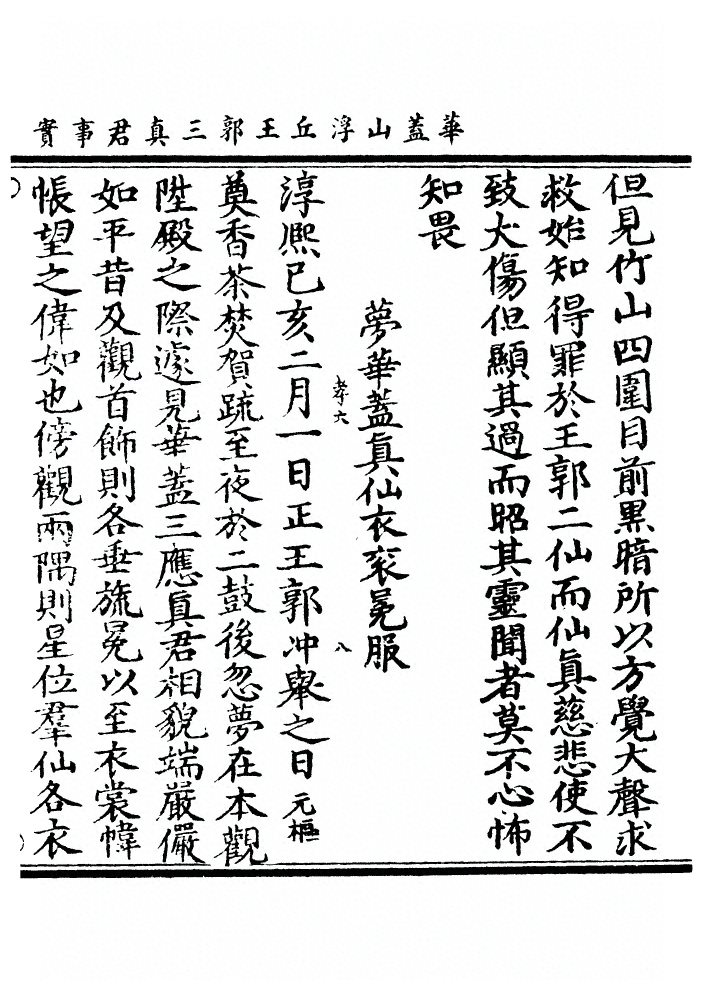 華蓋山浮丘王郭三真君事實
但見竹山四圍目前黒暗所以方覺大聲求
救始知得罪於王郭二仙而仙眞慈悲使不
致大傷但顯其過而昭其靈聞者莫不心怖
知畏
夢華蓋眞仙衣衮冕服
孝六
八
淳熈己亥二月一日正王郭冲舉之日元樞
奠香茶焚賀䟽至夜於二鼓後忽夢在本觀
陞殿之際遽見華蓋三應眞君相貌端嚴儼
如平昔及觀首飾則各垂旒冕以至衣裳幃
帳望之偉如也傍觀兩隅則星位羣仙各衣